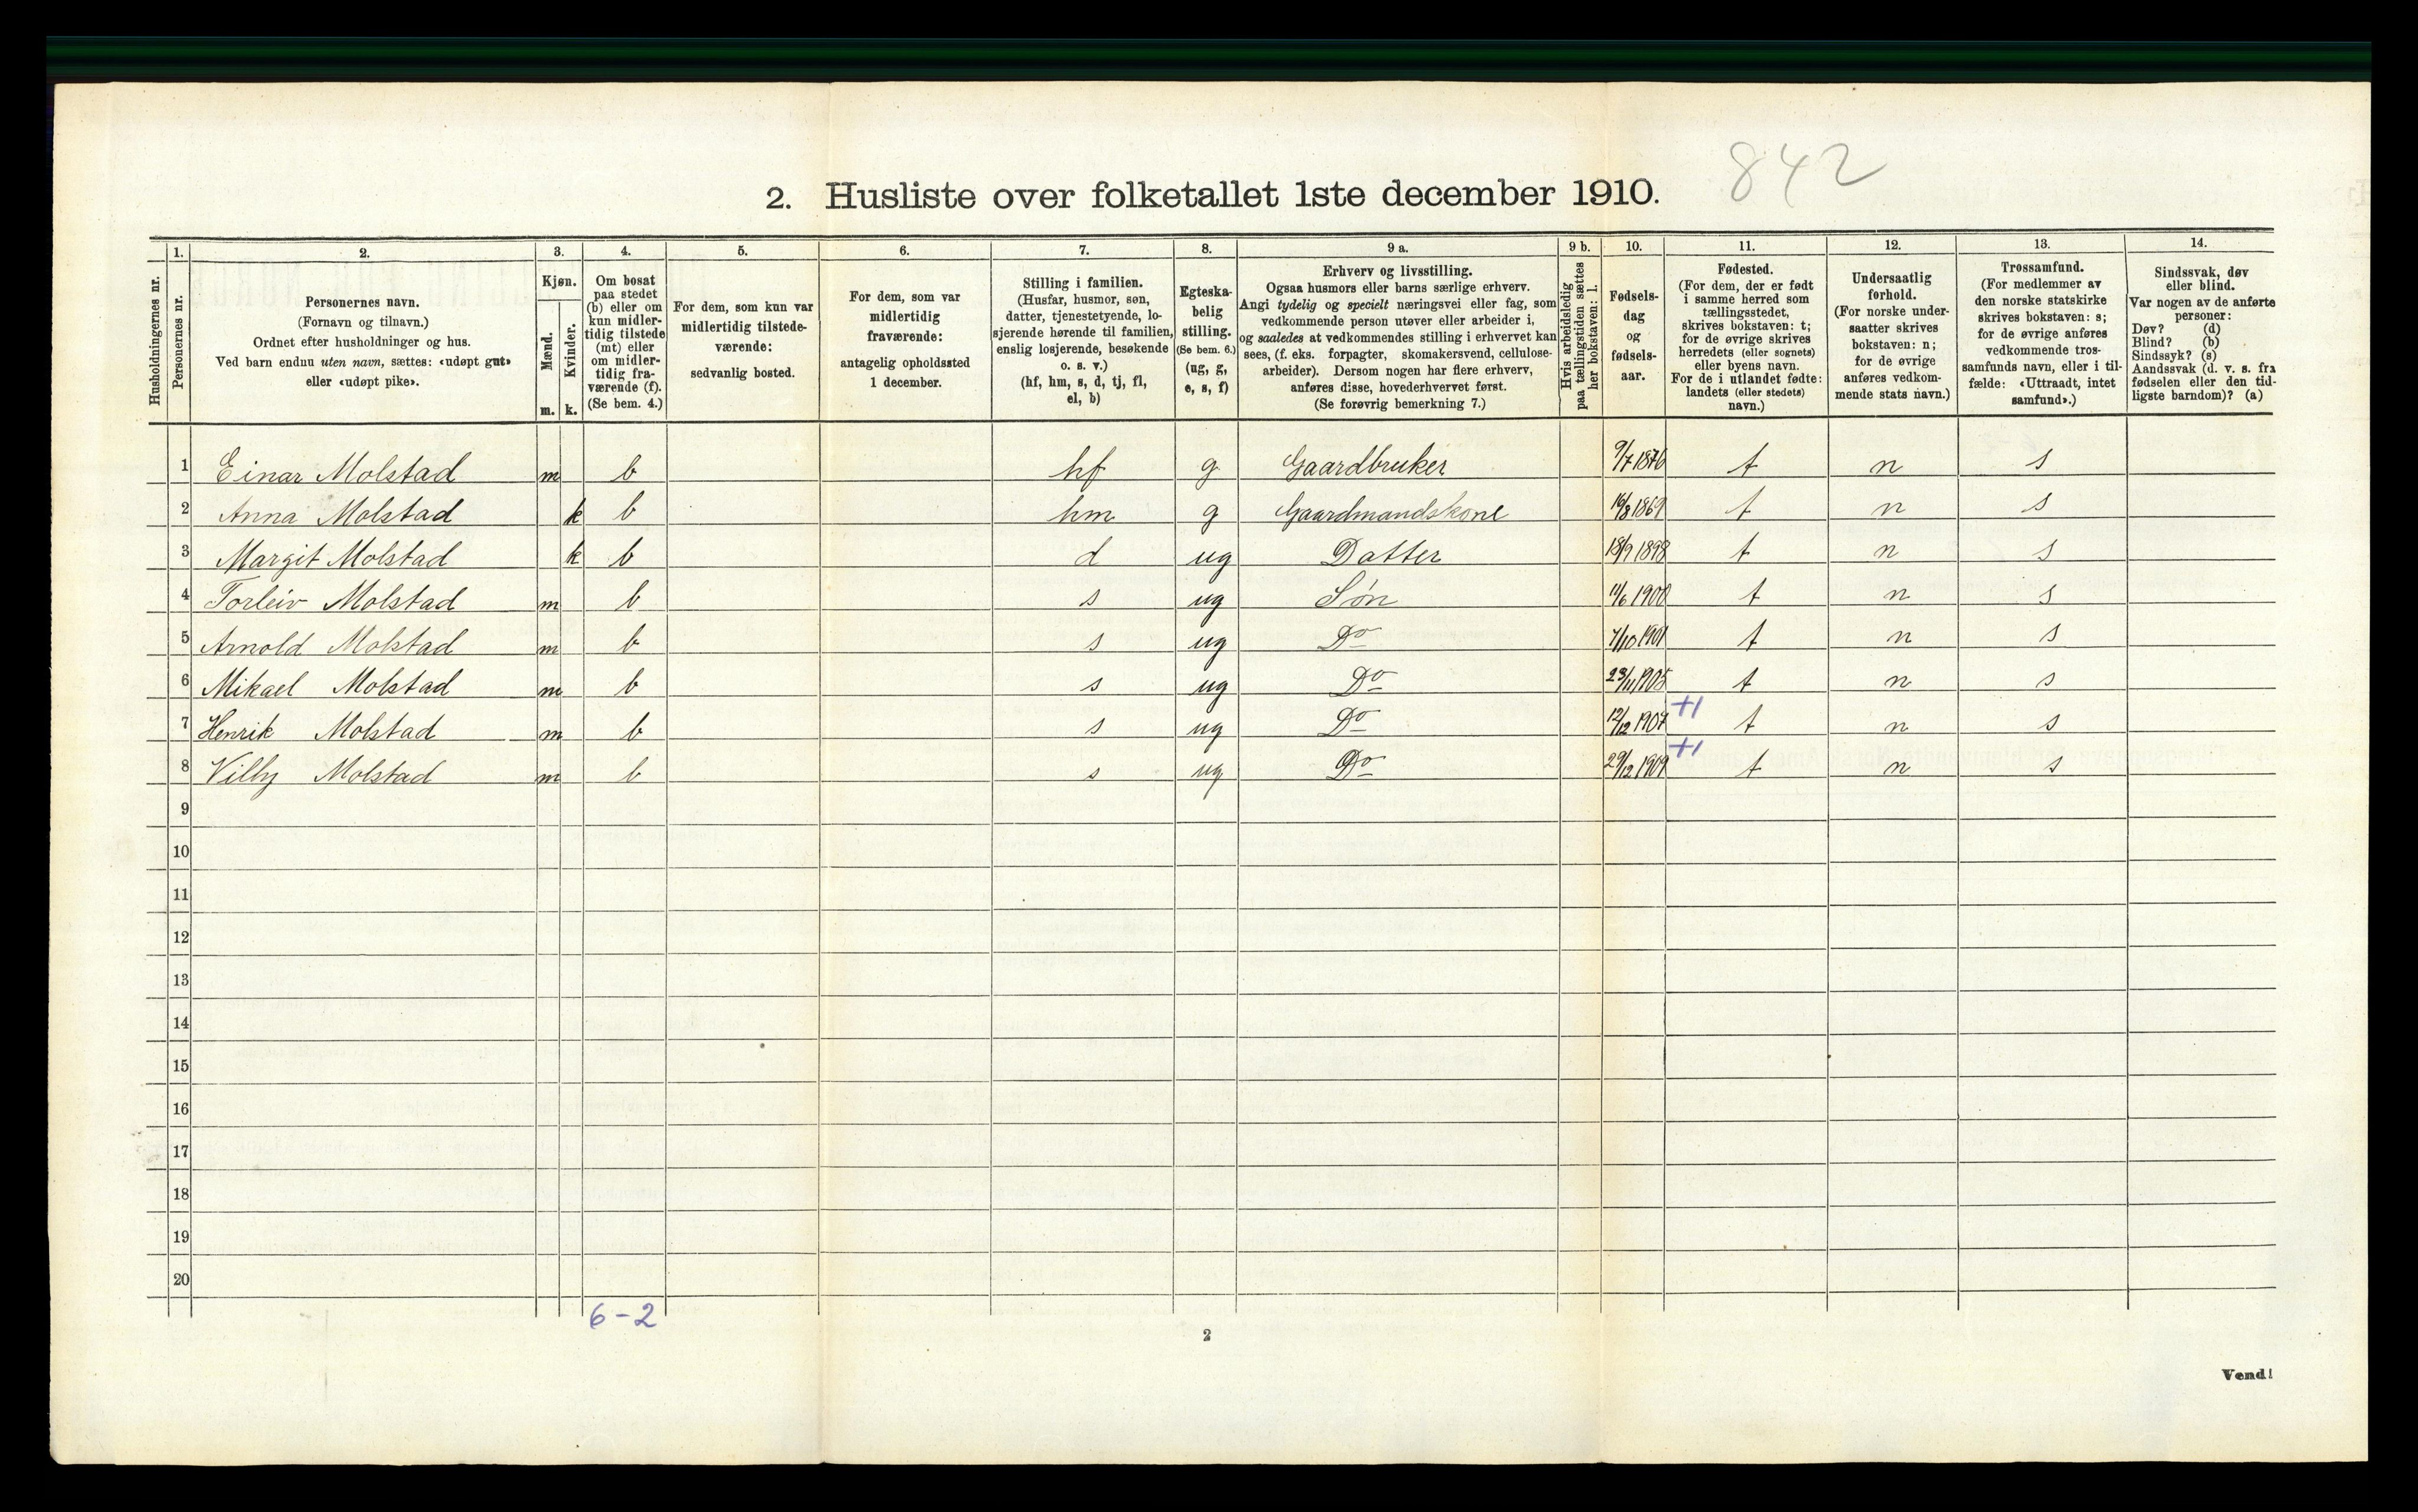 842
2. Husliste over folketallet 1ste december 1910.
Husholdningernes nr.
1. Personernes nr.
2. Personernes navn.
(Fornavn og tilnavn.)
Ordnet efter husholdninger og hus.
Ved barn endnu uten navn, sættes: «udøpt gut»
eller «udøpt pike».
3. Kjøn.
Mænd. m.
Kvinder. k.
4. Om bosat
paa stedet
(b) eller om
kun midler-
tidig tilstede
(mt) eller
om midler-
tidig fra-
værende (f).
(Se bem. 4.)
5. For dem, som kun var
midlertidig tilstede-
værende:
sedvanlig bosted.
6. For dem, som var
midlertidig
fraværende:
antagelig opholdssted
1 december.
7. Stilling i familien.
(Husfar, husmor, søn,
datter, tjenestetyende, lo-
sjerende hørende til familien,
enslig losjerende, besøkende
o. s. v.)
(hf, hm, s, d, tj, fl,
el, b)
8. Egteska-
belig
stilling.
(Se bem. 6.)
(ug, g,
e, s, f)
9 a. Erhverv og livsstilling.
Ogsaa husmors eller barns særlige erhverv.
Angi tydelig og specielt næringsvei eller fag, som
vedkommende person utøver eller arbeider i,
og saaledes at vedkommendes stilling i erhvervet kan
sees, (f. eks. forpagter, skomakersvend, cellulose-
arbeider). Dersom nogen har flere erhverv,
anføres disse, hovederhvervet først.
(Se forøvrig bemerkning 7.)
9 b. Hvis arbeidsledig
paa tællingstiden sættes
her bokstaven: l.
10. Fødsels-
dag
og
fødsels-
aar.
11. Fødested.
(For dem, der er født
i samme herred som
tællingsstedet,
skrives bokstaven: t;
for de øvrige skrives
herredets (eller sognets)
eller byens navn.
For de i utlandet fødte:
landets (eller stedets)
navn.)
12. Undersaatlig
forhold.
(For norske under-
saatter skrives
bokstaven: n;
for de øvrige
anføres vedkom-
mende stats navn.)
13. Trossamfund.
(For medlemmer av
den norske statskirke
skrives bokstaven: s;
for de øvrige anføres
vedkommende tros-
samfunds navn, eller i til-
fælde: «Uttraadt, intet
samfund».)
14. Sindssvak, døv
eller blind.
Var nogen av de anførte
personer:
Døv? (d)
Blind? (b)
Sindssyk? (s)
Aandssvak (d. v. s. fra
fødselen eller den tid-
ligste barndom)? (a)
1 Einar Molstad m b hf g Gaardbruker 9/7 1876 t n s
2 Anna Molstad k b hm g Gaardmandskone 16/8 1869 t n s
3 Margit Molstad k b d ug Datter 18/9 1898 t n s
4 Torleiv Molstad m b s ug Søn 11/6 1900 t n s
5 Arnold Molstad m b s ug Do 7/10 1901 t n s
6 Mikael Molstad m b s ug Do 23/11 1905 t n s
7 Henrik Molstad m b s ug Do 12/12 1907 +1 t n s
8 Villy Molstad m b s ug Do 29/12 1909 +1 t n s
9
10
11
12
13
14
15
16
17
18
19
20
6-2
2
Vend!